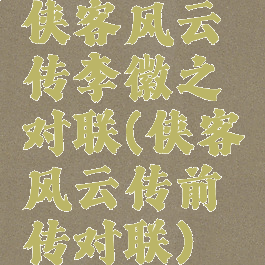 侠客风云
传李徽之
对联(侠客
风云传前
传对联)